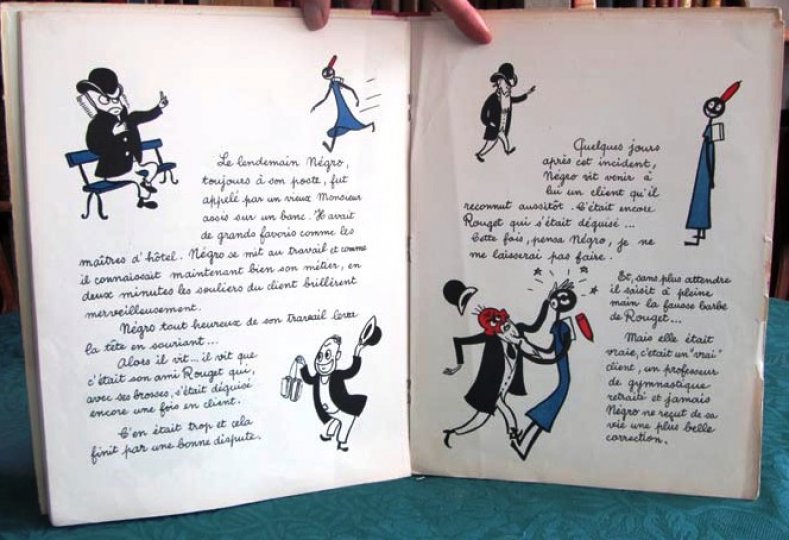 Le lendemain Négro,
toujours à son poste, fut
appelé par un vieux Monsieur
assis sur un banc. Il avait
de grands favoris comme les
maîtres d'hôtel. Négro se mit au travail et comme
il connaissait maintenant bien son métier, en
deux minutes les souliers du client brillèrent
merveilleusement.
Négro tout heureux de son travail leva
la tête en souriant...
Alors il vit... il vit que
c'était son ami Rouget qui,
avec ses brosses, s'était déguisé
encore une fois en client.
C'en était trop et cela
finit par une bonne dispute.
Quelques jours
après cet incident,
Négro vit venir à
lui un client qu'il
reconnut aussitôt. C'était encore
Rouget qui s'était déguisé...
Cette fois, pensa Négro, je ne
me laisserai pas faire.
Et, sans plus attendre
il saisit à pleine
main la fausse barbe
de Rouget...
Mais elle était
vraie, c'était un "vrai"
client, un professeur
de gymnastique
retraité et jamais
Négro ne reçut de sa
vie une plus belle
correction.